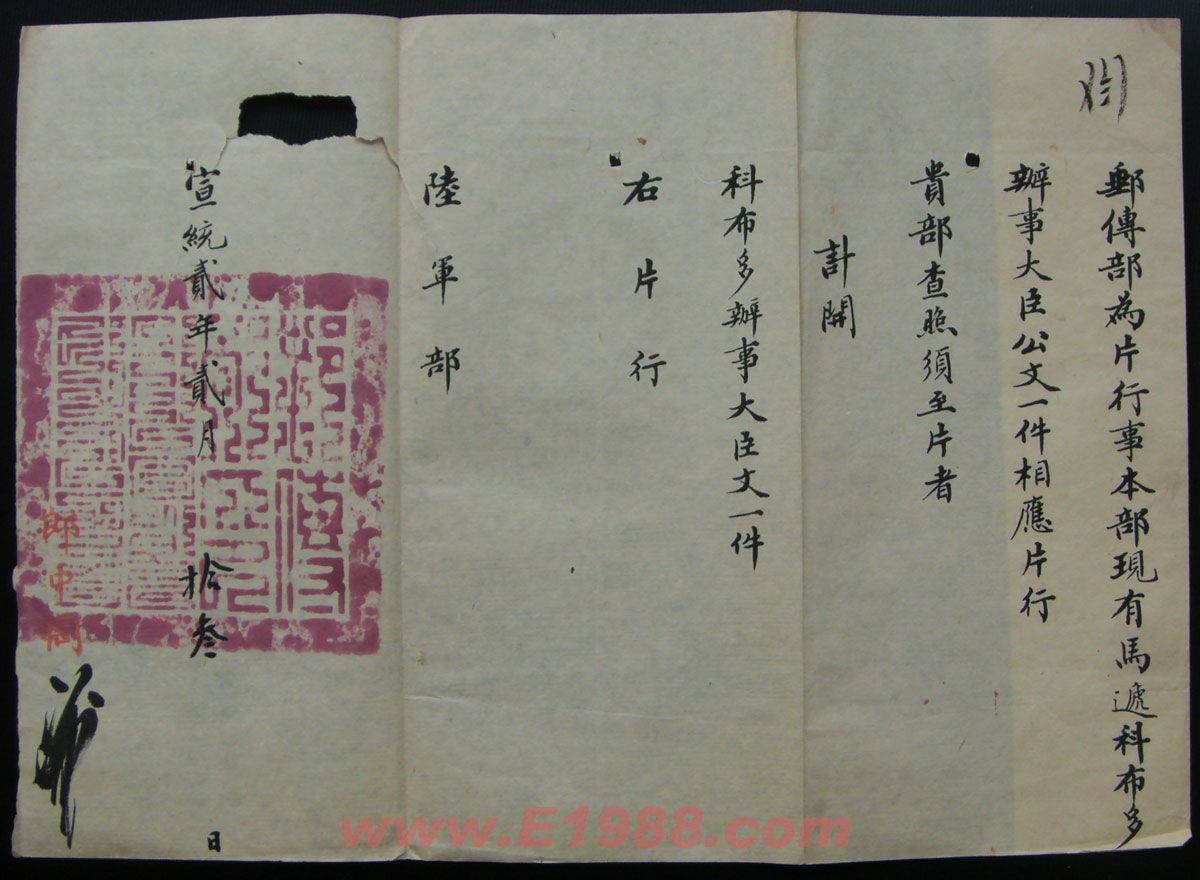 郵傳部為片行事本部現有馬遞科布多
辦事大臣公文一件相應片行
貴部查照須至片者
計開
科布多辦事大臣文一件
右片行
陸軍部
宣統貳年貳月拾叄日
郎中周
www.E1988.com